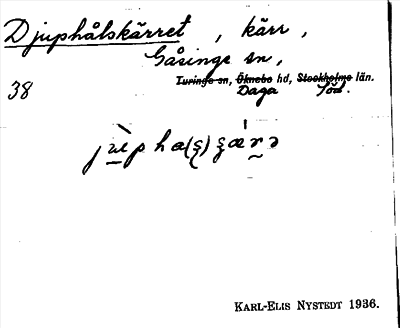 Djuphålskärret, kärr,
Gåsinge sn,
Turinge sn, Öknebo hd, Stockholms län.
38 Daga Söd.
KARL-ELIS NYSTEDT 1936.